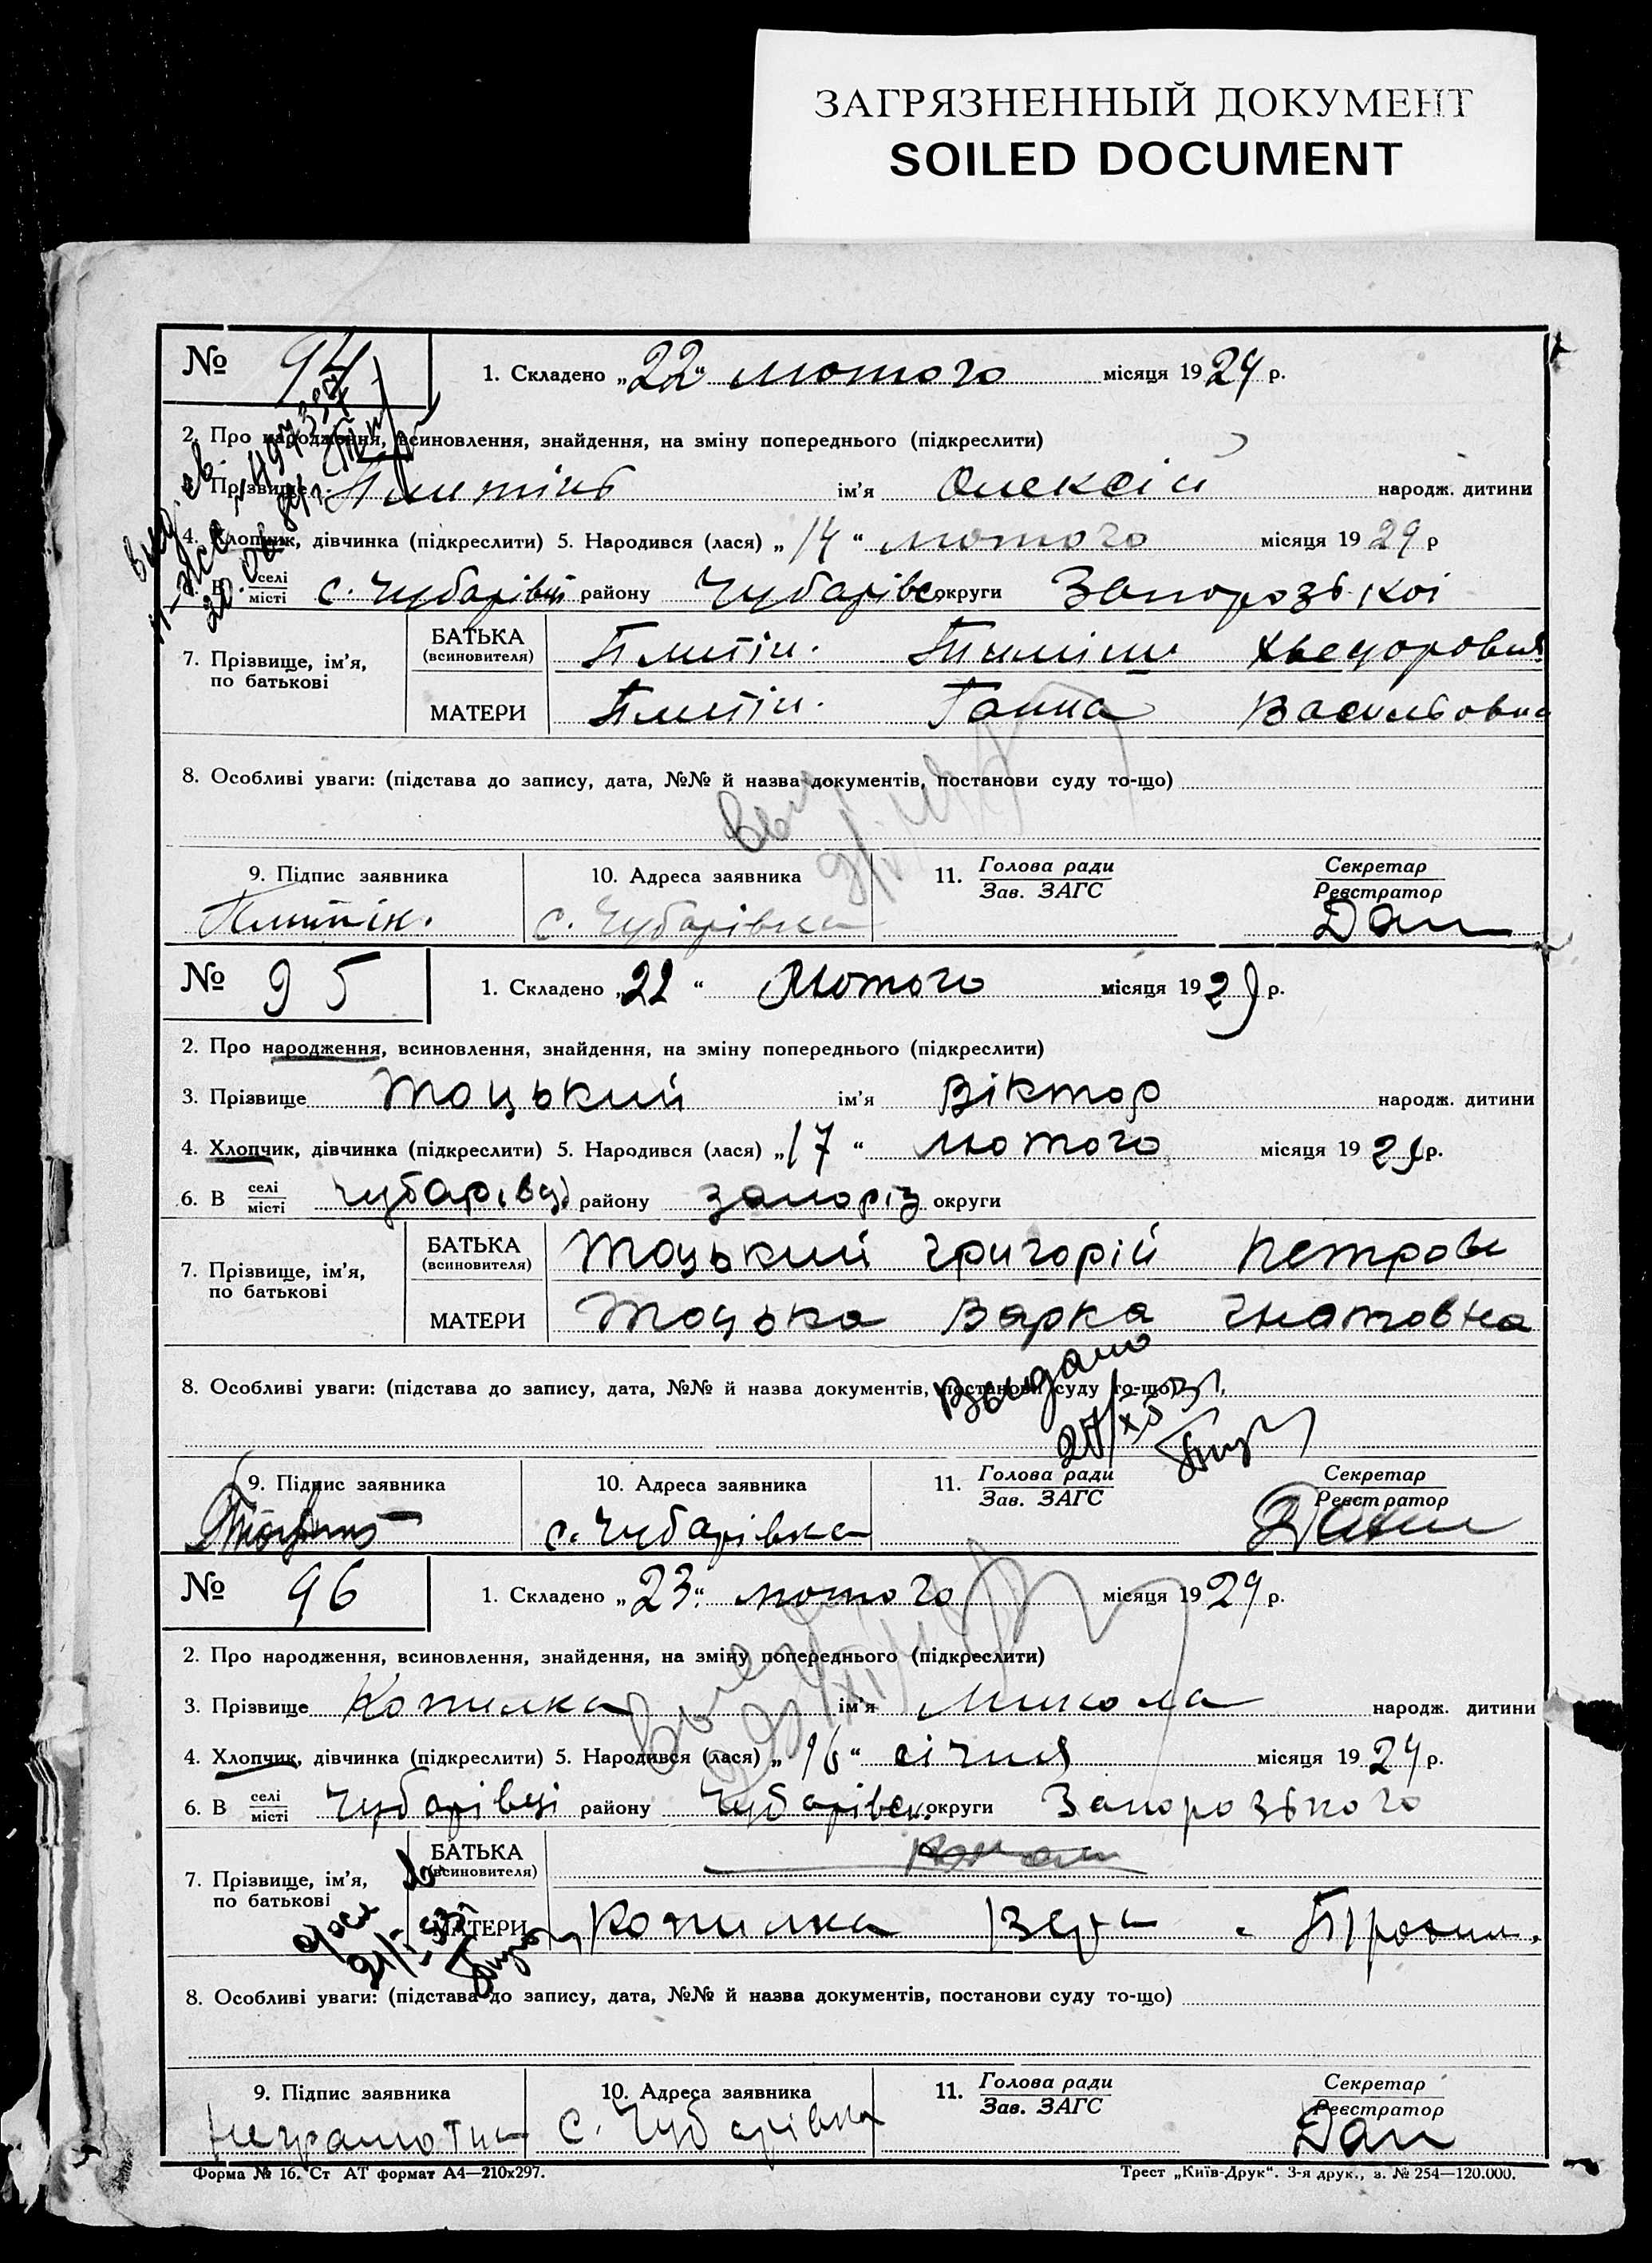 ЗАГРЯЗНЕННЫЙ ДОКУМЕНТ
SOILED DOCUMENT
№ 94
1. Складено „22“ лютого місяця 1929 р.
2. Про народження, всиновлення, знайдення, на зміну попереднього (підкреслити)
Прізвище ім'я Олексій народж. дитини
4. Хлопчик, дівчинка (підкреслити) 5. Народився (лася) „14“ лютого місяця 1929 р
В селі місті с. Чубарівці району Чубарівс. округи Запорозької
7. Прізвище, ім'я, по батькові
БАТЬКА (всиновителя) Плитін. Хведорович
МАТЕРИ Плитін. Ганна Васильовна
8. Особливі уваги: (підстава до запису, дата, №№ й назва документів, постанови суду то-що)
9. Підпис заявника 10. Адреса заявника 11. Голова ради Зав. ЗАГС Секретар Реєстратор
Плитін. с. Чубарівка Дан
№ 95
1. Складено „22“ Лютого місяця 1929 р.
2. Про народження, всиновлення, знайдення, на зміну попереднього (підкреслити)
3. Прізвище Тоцький ім'я Віктор народж. дитини
4. Хлопчик, дівчинка (підкреслити) 5. Народився (лася) „17“ лютого місяця 1929 р.
6. В селі місті Чубарівці району запоріз округи
7. Прізвище, ім'я, по батькові
БАТЬКА (всиновителя) Тоцький Григорій Петров
МАТЕРИ Тоцька Варка Гнатовна
8. Особливі уваги: (підстава до запису, дата, №№ й назва документів, постанови суду то-що)
Выдано
9. Підпис заявника 10. Адреса заявника 11. Голова ради Зав. ЗАГС Секретар Реєстратор
с. Чубарівка
№ 96
1. Складено „23“ лютого місяця 1929 р.
2. Про народження, всиновлення, знайдення, на зміну попереднього (підкреслити)
3. Прізвище Копилка ім'я Микола народж. дитини
4. Хлопчик, дівчинка (підкреслити) 5. Народився (лася) „16“ січня місяця 1929 р.
6. В селі місті Чубарівці району Чубарівськ. округи Запорозького
7. Прізвище, ім'я, по батькові
БАТЬКА (всиновителя)
МАТЕРИ Копилка Вера
8. Особливі уваги: (підстава до запису, дата, №№ й назва документів, постанови суду то-що)
9. Підпис заявника 10. Адреса заявника 11. Голова ради Зав. ЗАГС Секретар Реєстратор
неграмотна с. Чубарівка Дан
Форма № 16. Ст АТ формат А4—210х297. Трест „Київ-Друк“. 3-я друк., з. № 254—120.000.